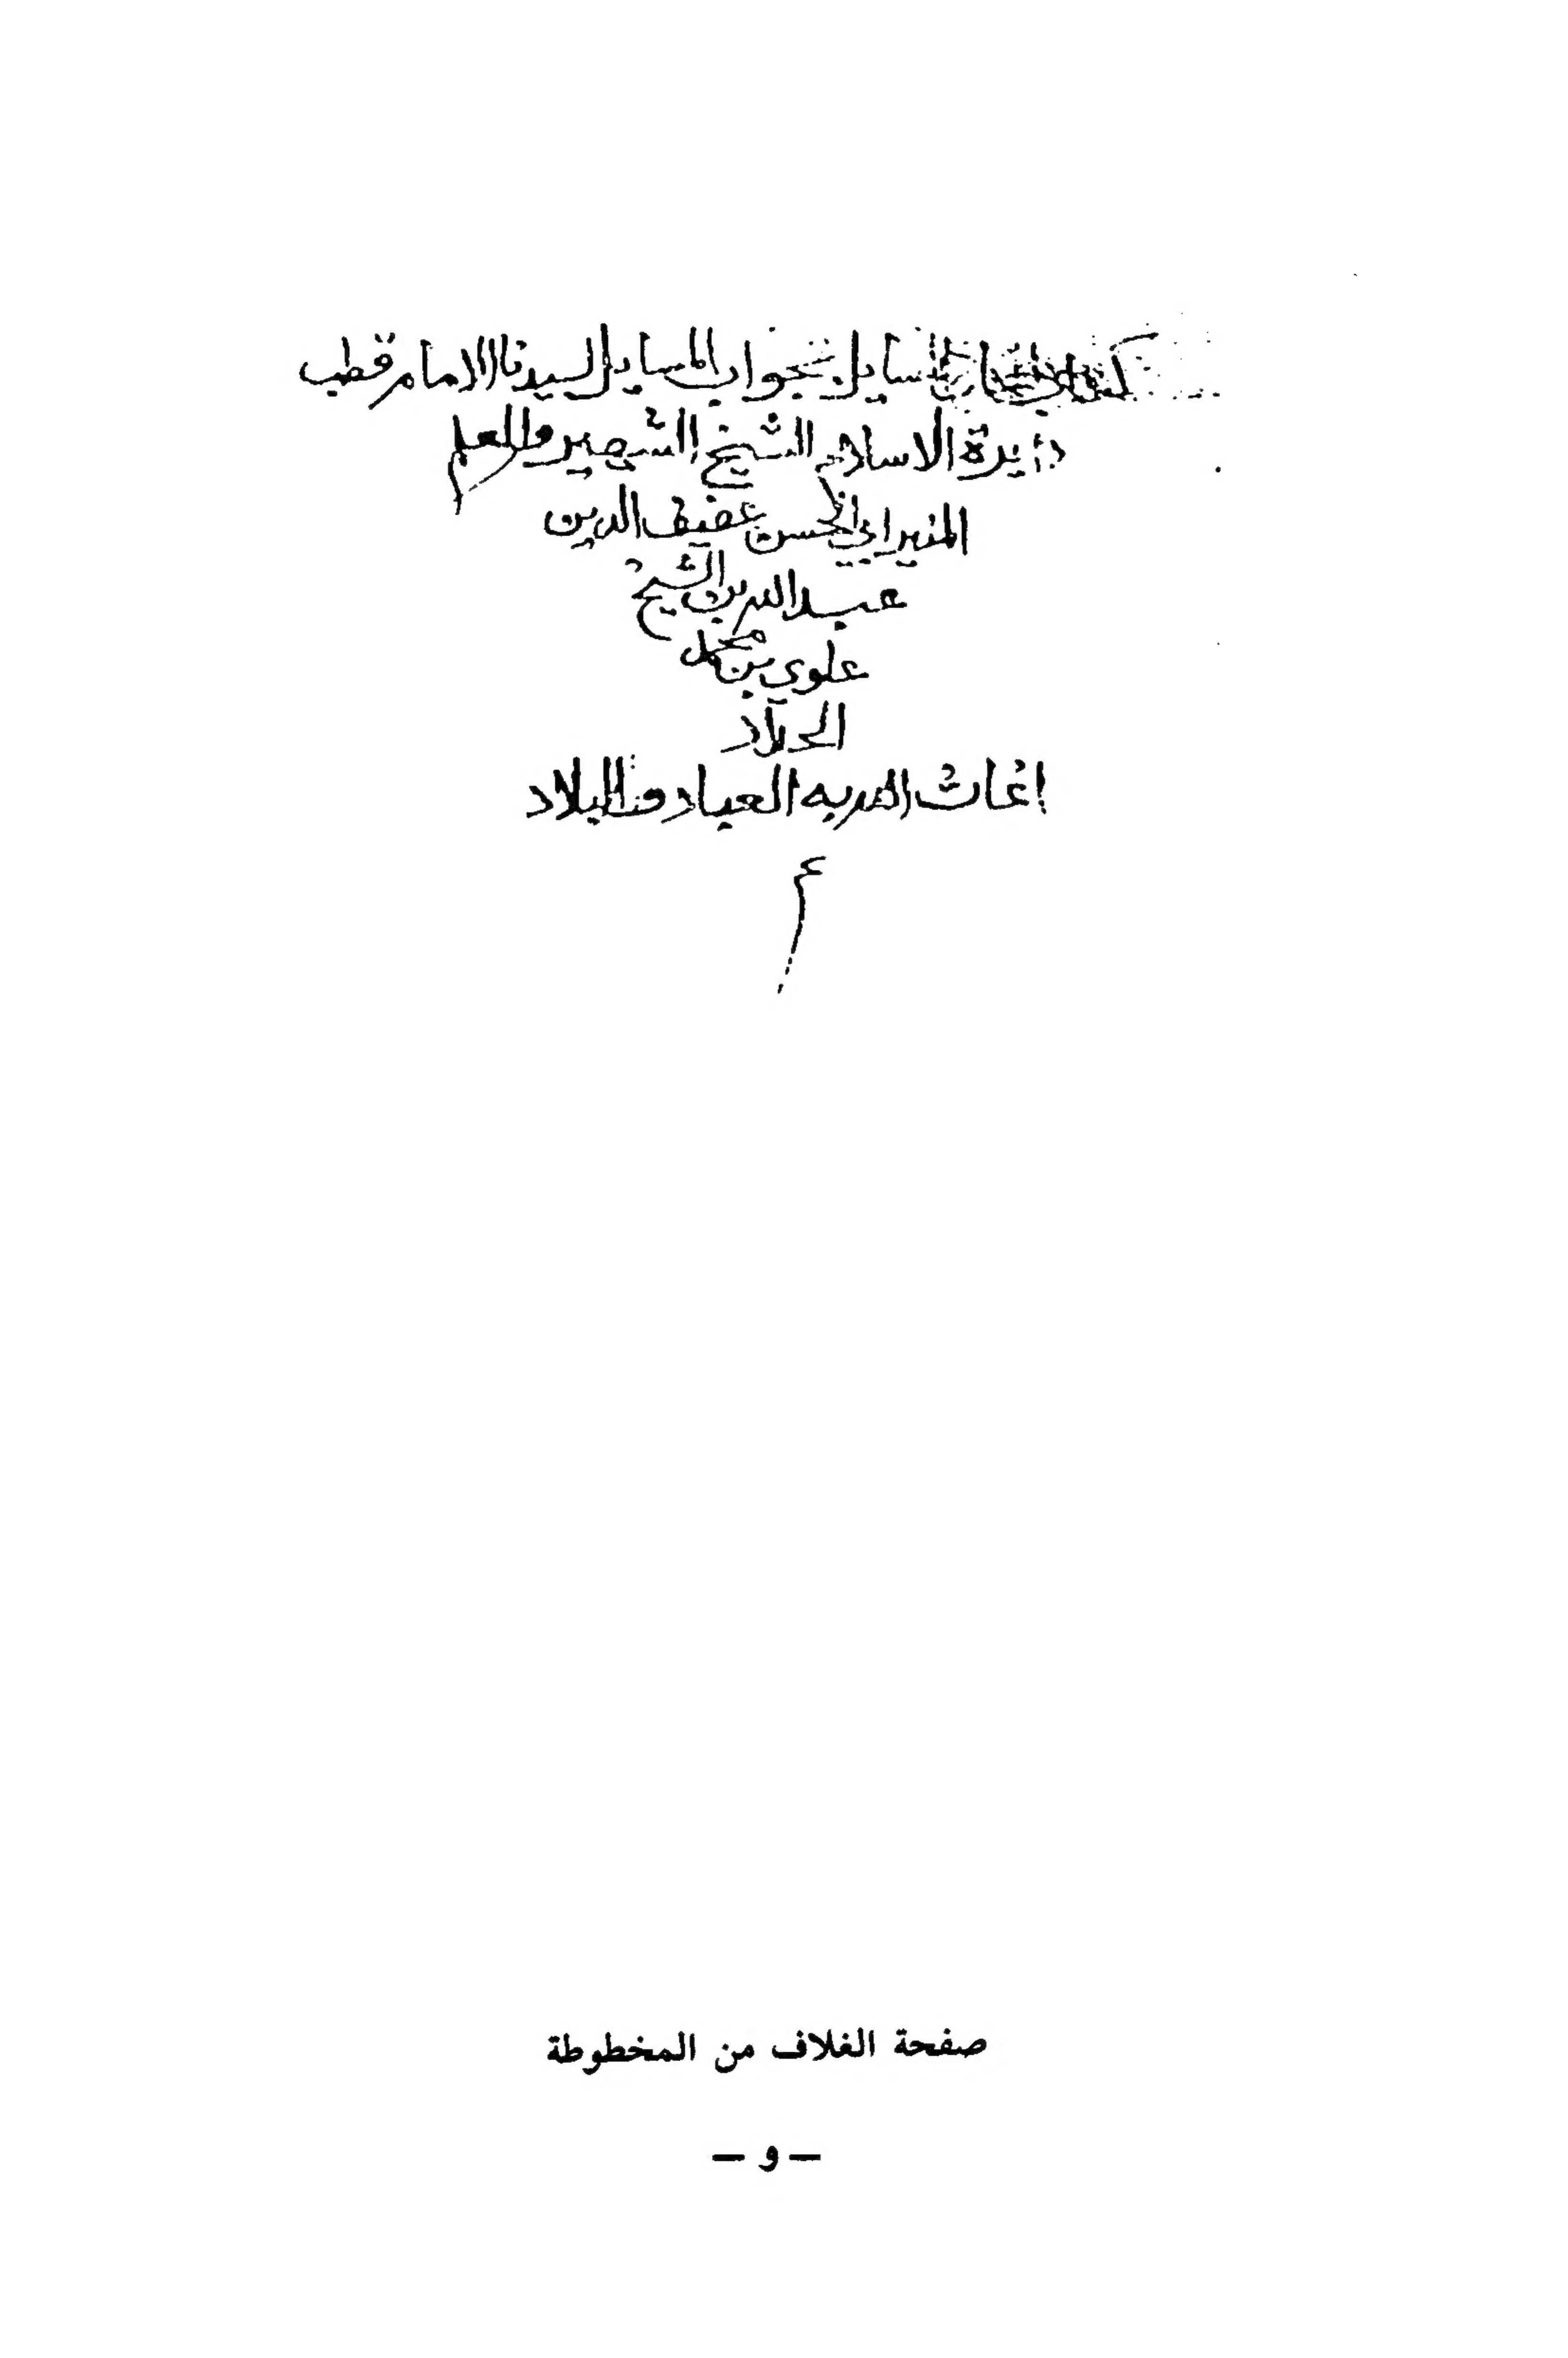 كتاب اتحاف السايل بجواب المسايل لسيدنا الامام قطب
دايرة الاسلام الشيخ الشهير والعلم
المنير ابي الحسن عفيف الدين
عبد الله بن الشيخ
علوي بن محمد
الحداد
اغاث الله به العباد والبلاد
صفحة الغلاف من المخطوطة
— و —